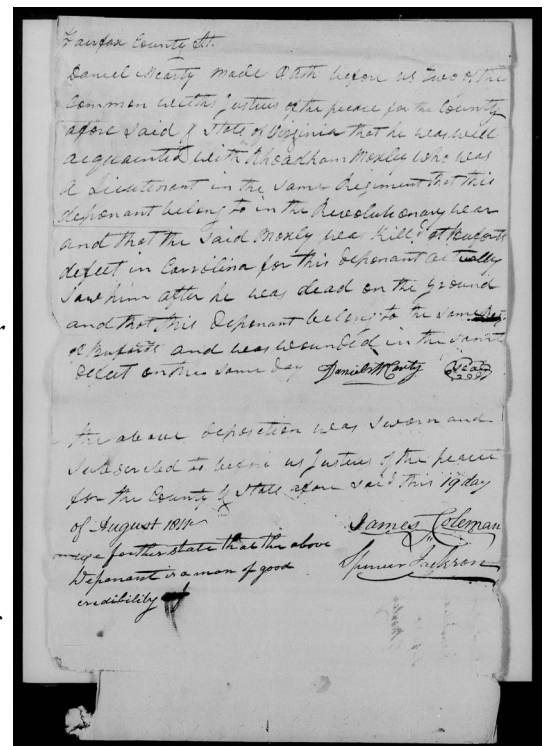 Fairfax County St.
Daniel Mcarty made Oath before us Two of the
Common welths Justices of the peace for the County
afore said & State of Virginia that he was well
acquainted with Rhoadham Moxley who was
a Lieutenant in the same Regiment that this
deponant belong to in the Revolutionary war
and that the said Moxly was Killd at Bufords
defeet in Carrolina for this deponant actually
Saw him after he was dead on the ground
and that this Deponant belong to the same
of Bufords and was wounded in the same
Defeet on the same day Daniel McCarty Seal
the above deposition was Sworn and
Subscribed to before us Justices of the peace
for the County & State afore said this 19 day
of August 1811
we further state that the above James Coleman
Deponant is a man of good Spencer Jackson
credibility